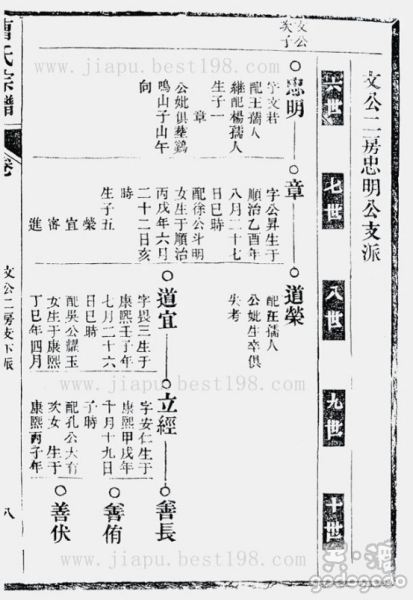 文公二房忠明公支派
六世
七世
八世
九世
十世
文公
次子
忠明
字文
配王孺人
繼配楊孺人
生子一
章
公妣俱葬鷄
鳴山子山午
向
章
字公昇生于
順治乙酉年
八月二十七
日巳時
配徐公斗明
女生于順治
丙戌年六月
二十二日亥
時
生子五
榮
宜
審
進
道榮
配汪孺人
公妣生卒俱
失考
道宜
字畏三生于
康熙壬子年
七月二十六
日巳時
配吳公耀玉
女生于康熙
丁巳年四月
立經
字安仁生于
康熙甲戌年
十月十九日
子時
配孔公大有
次女生于
康熙丙子年
善長
善侑
善伏
曹氏宗譜
卷
文公二房支下派
八
www.jiapu.best198.com
www.jiapu.best198.com
www.jiapu.best198.com
www.jiapu.best198.com
gödogodo